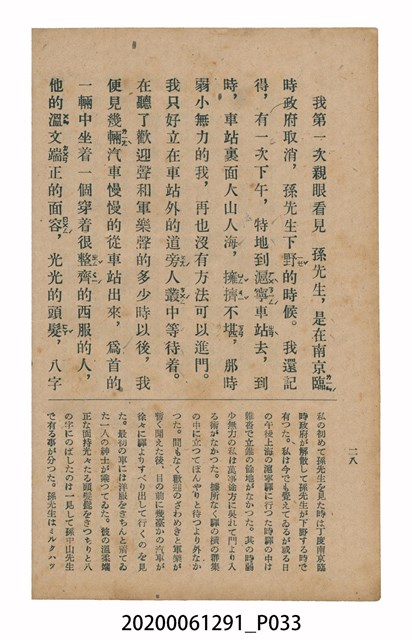 我第一次親眼看見　孫先生，是在南京臨
時政府取消，孫先生下野的時候。我還記
得，有一次下午，特地到滬寧車站去，到
時，車站裏面人山人海，擁擠不堪，那時
弱小無力的我，再也沒有方法可以進門。
我只好立在車站外的道旁人叢中等待着。
在聽了歡迎聲和軍樂聲的多少時以後，我
便見幾輛汽車慢慢的從車站出來，爲首的
一輛中坐着一個穿着很整齊的西服的人，
他的溫文端正的面容，光光的頭髮，八字
二八
私の初めて孫先生を見た時は丁度南京臨
時政府が解散して孫先生が下野する時で
有つた。私は今でも覺えてゐるが或る日
の午後上海の滬寧驛に行つた時驛の中は
雜沓で立錐の餘地がなかつた。其の時弱
少無力の私は萬事途方に呉れて門より入
る術がなかつた。據所なく驛の橫の群集
の中に立つてぼんやりと待つより外なか
つた。間もなく歡迎のざわめきと軍樂が
暫く聞えた後、目の前に幾臺かの汽車が
徐々に驛よりすべり出して行くのを見
た。最初の車には洋服をきちんと着てゐ
た一人の紳士が乘つてゐた。彼の溫柔端
正な面持光々たる頭髮髭をきつちりと八
の字にのばしたのは一見して孫中山先生
で有る事が分つた。孫先生はミルクハツ
20200061291_P033